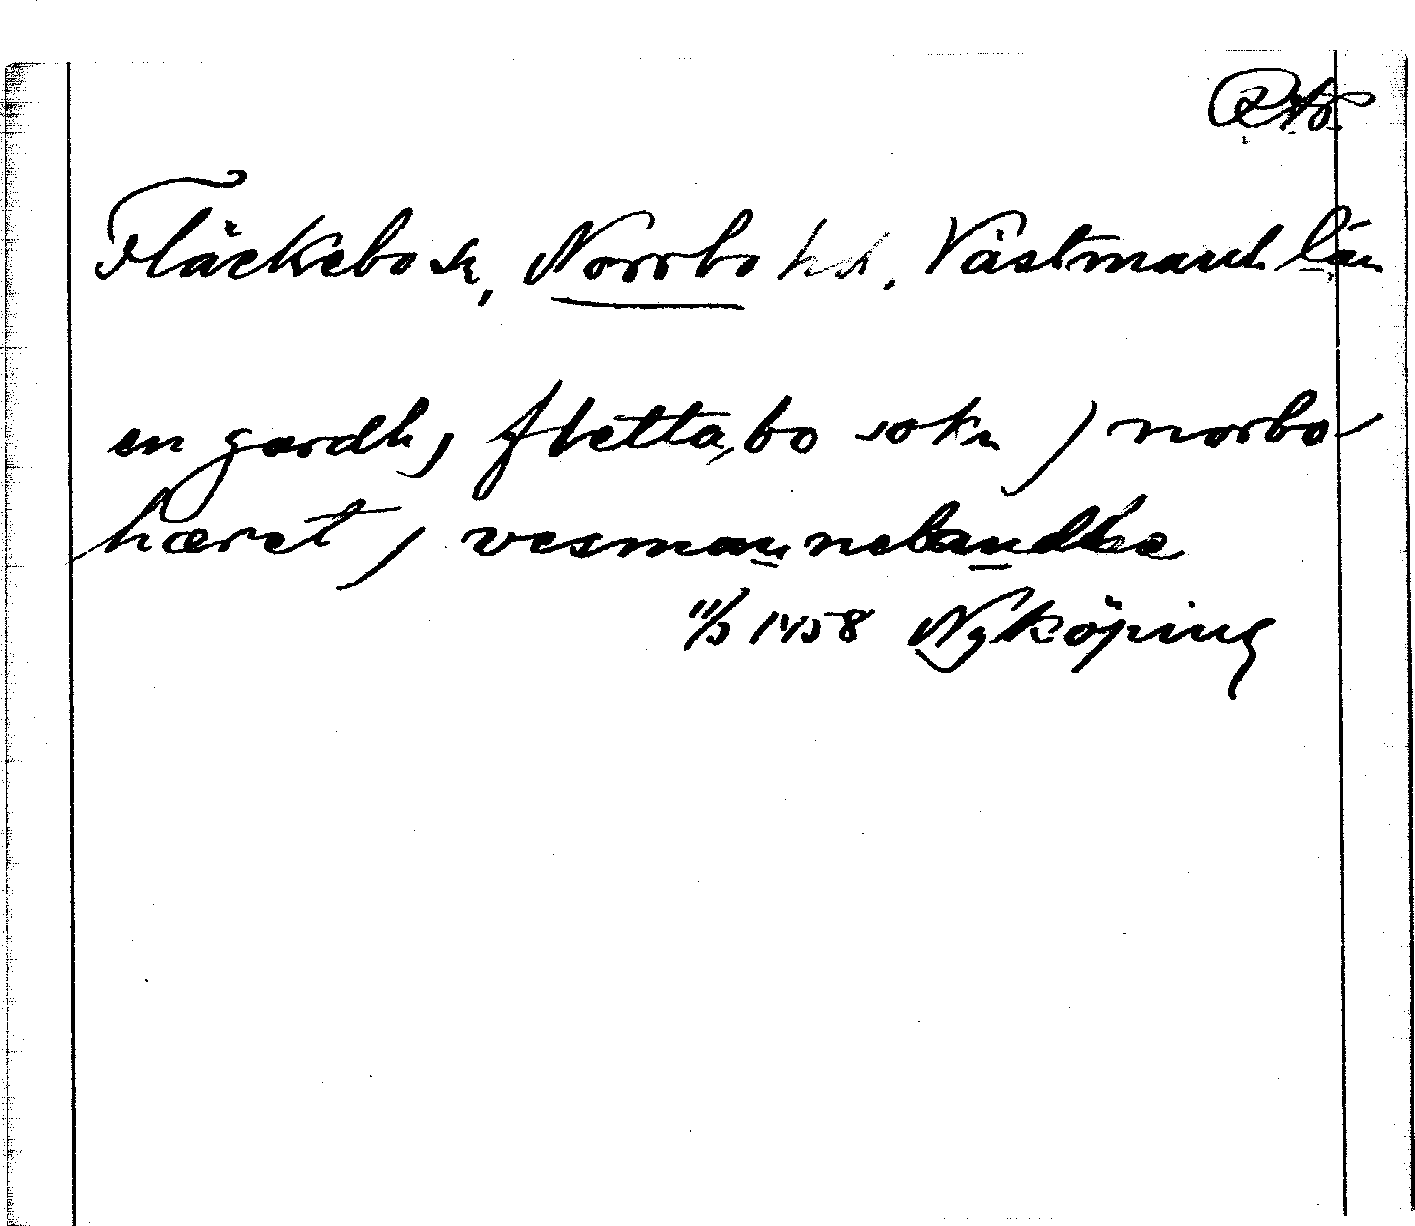 Fläckebo sn, Norrbo hd. Västmanl. län
en gardh j fletta,bo sokn j norbo
hæret j vesmannelandhe
11/5 1458 Nyköping